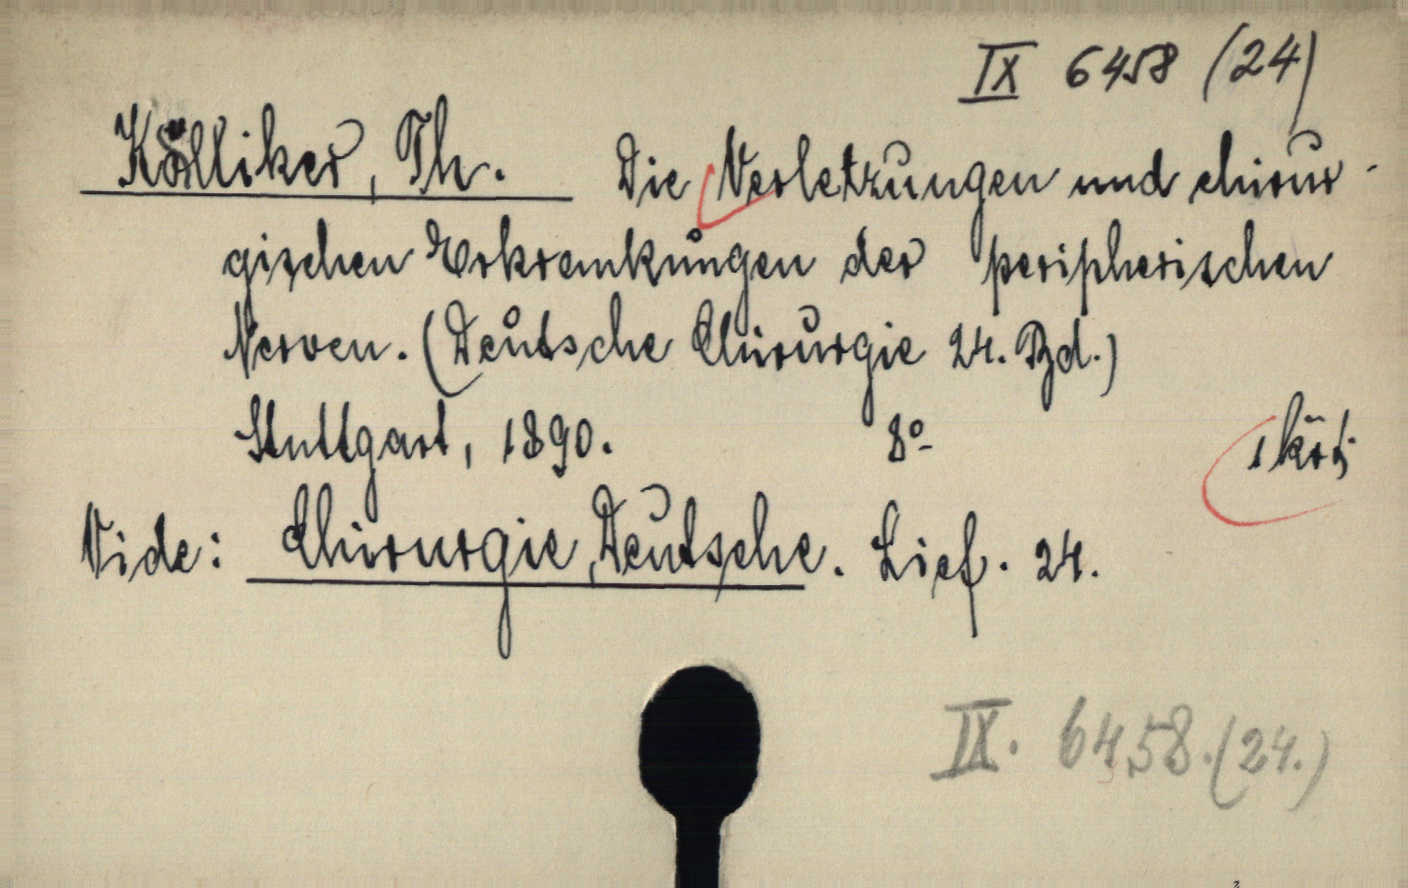 IX 6458 (24)
Kölliker, Th. Die Verletzungen und chirur-
gischen Erkrankungen der peripherischen
Nerven. (Deutsche Chirurgie 24. Bd.)
Stuttgart, 1890. 8°
Vide: Chirurgie, Deutsche. Lief. 24.
IX. 6458. (24.)